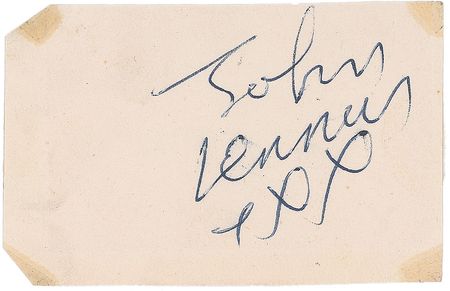 John
Lennon
xxx